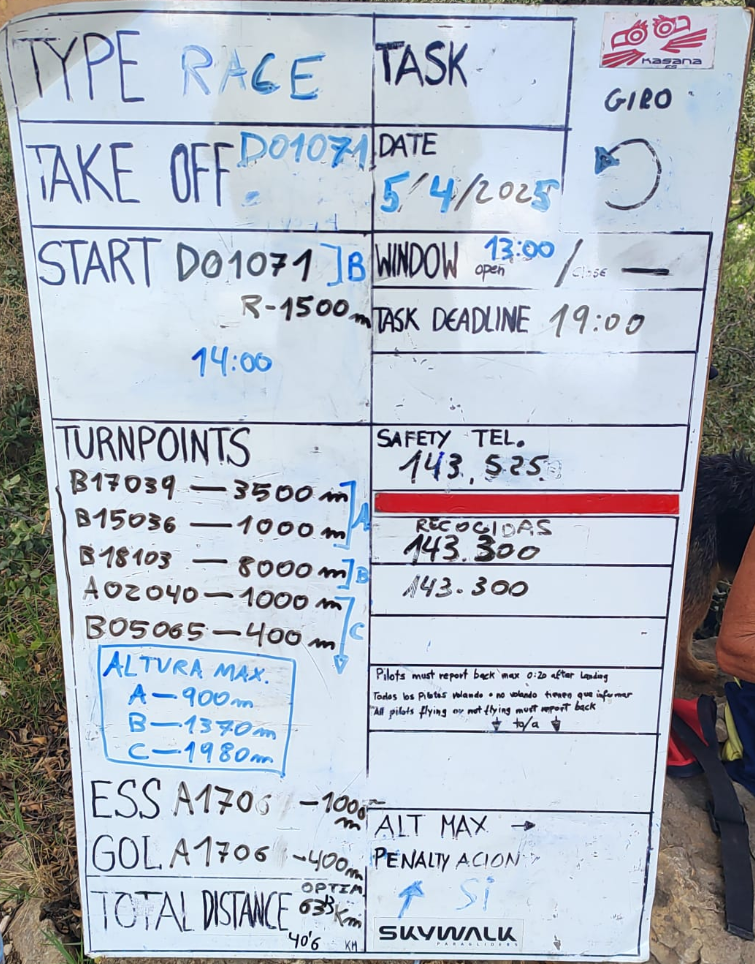 TYPE RACE
TASK
Kasana
GIRO
TAKE OFF D01071
DATE
5/4/2025
START D01071 ]B
R-1500m
14:00
WINDOW open 13:00 / close —
TASK DEADLINE 19:00
TURNPOINTS
B17039 — 3500 m
B15036 — 1000 m ]A
B18103 — 8000 m ]B
A02040 — 1000 m
B05065 — 400 m C
ALTURA MAX.
A — 900m
B — 1370m
C — 1980m
ESS A1706 - 1000 m
GOL A1706 - 400m
TOTAL DISTANCE OPTIM
63'3 Km
40'6 KM
SAFETY TEL.
143.525
RECOGIDAS
143.300
143.300
Pilots must report back max 0:20 after landing
Todos los Pilotos volando o no volando tienen que informar
All pilots flying or not flying must report back
to/a
ALT MAX →
PENALTY ACION
↑ SI
SKYWALK
PARAGLIDERS